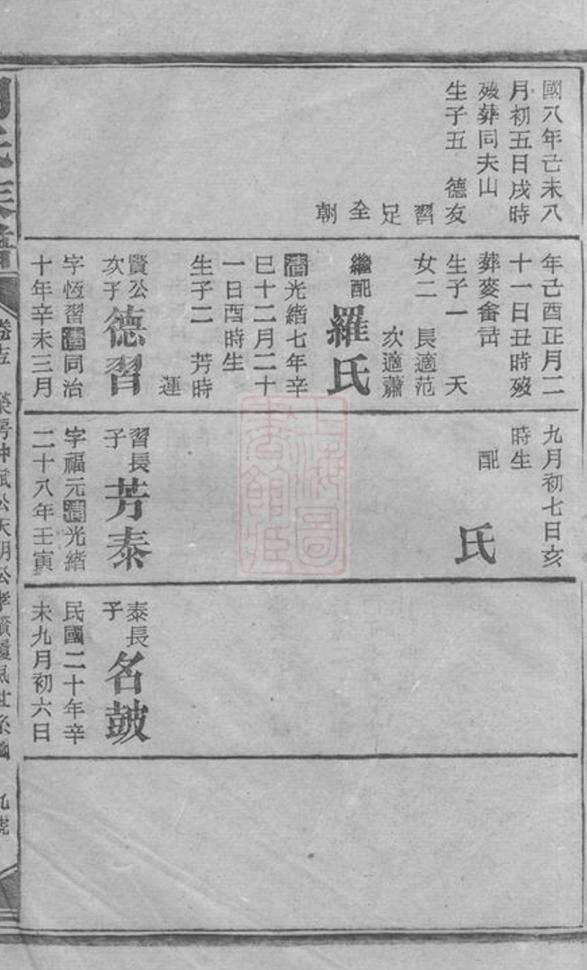 國八年己未八
月初五日戌時
歿葬同夫山
生子五 德友
習
足
全
朝
年己酉正月二
十一日丑時歿
葬麥畬
生子一 天
女二 長適范
次適蕭
繼配 羅氏
清光緒七年辛
巳十二月二十
一日酉時生
生子二 芳時
運
賢公次子 德習
字恆習清同治
十年辛未三月
九月初七日亥
時生
配 氏
習長子 芳泰
字福元清光緒
二十八年壬寅
泰長子 名皷
民國二十年辛
未九月初六日
氏族譜
卷 榮房仲斌公天朗公孝 九號
上海圖書館藏